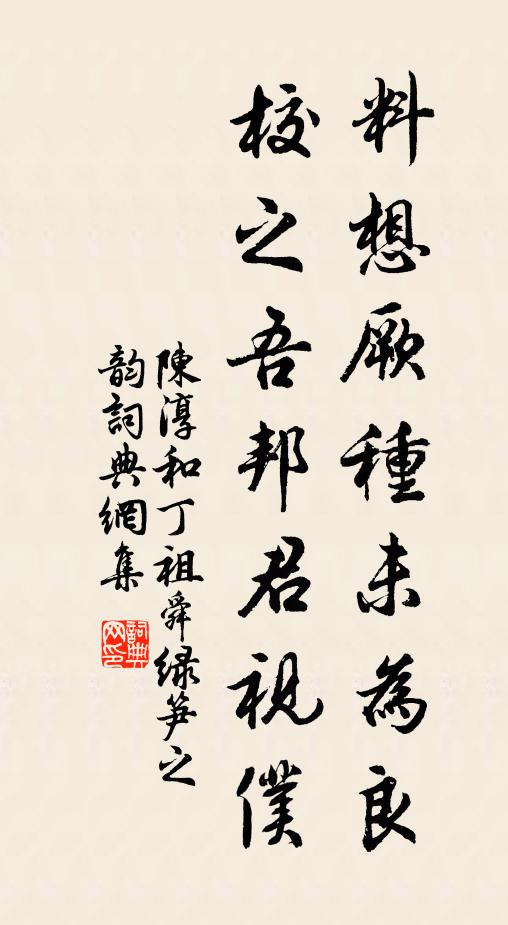 料想厥種未為良
校之吾邦君視僕
陳淳和丁祖舜緑笋之
韵詞典網集
詞典网印